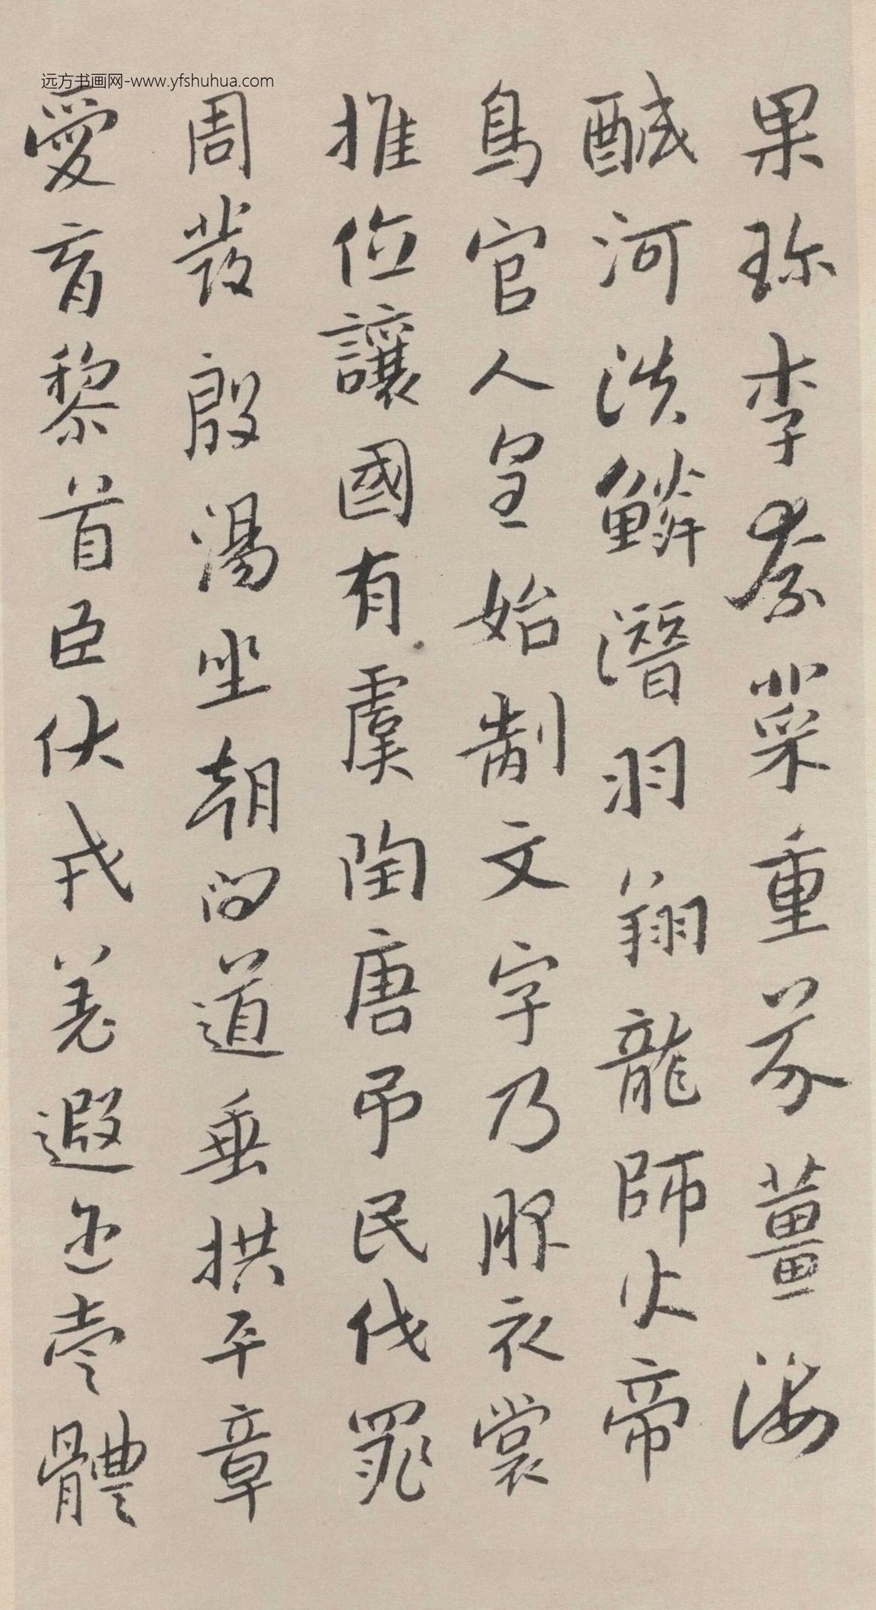 远方书画网-www.yfshuhua.com
果珎李柰菜重芥薑海
醎河淡鱗潛羽翔龍師火帝
鳥官人皇始制文字乃服衣裳
推位讓國有虞陶唐弔民伐罪
周發殷湯坐朝问道垂拱平章
愛育黎首臣伏戎羌遐迩壹體